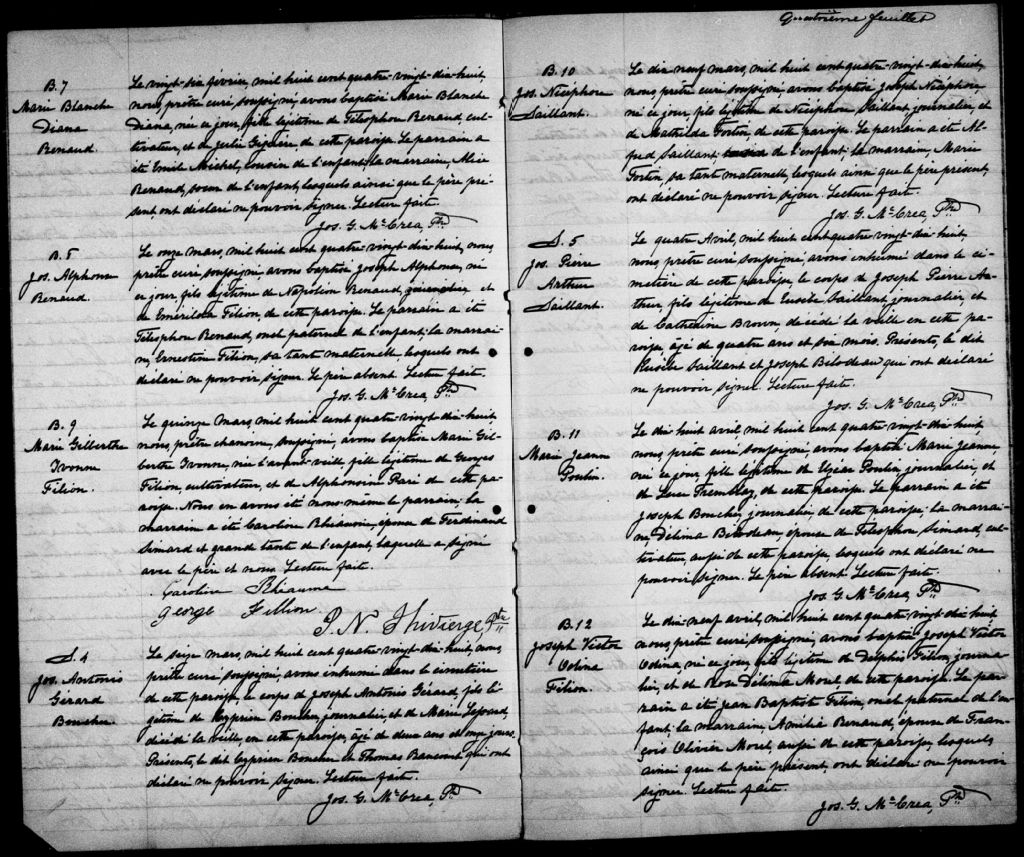 B. 7
Marie Blanche
Diana
Renaud
Le vingt-six février, mil huit cent quatre-vingt-dix-huit,
nous, prêtre curé, soussigné, avons baptisé Marie Blanche
Diana, née ce jour, fille légitime de Télesphore Renaud, cul-
tivateur, et de Julie Giguère de cette paroisse. Le parrain a
été Emile Michel, cousin de l'enfant, la marraine, Alice
Renaud, soeur de l'enfant, lesquels ainsi que le père pré-
sent, ont déclaré ne pouvoir signer. Lecture faite.
Jos. G. McCrea, Ptre
B. 8
Jos. Alphonse
Renaud.
Le onze mars, mil huit cent quatre-vingt-dix-huit, nous,
prêtre curé soussigné avons baptisé Joseph Alphonse, né
ce jour, fils légitime de Napoléon Renaud, et
de Emérilda Filion, de cette paroisse. Le parrain a été
Télesphore Renaud, oncle paternel de l'enfant, la marrai-
ne, Ernestine Filion, sa tante maternelle, lesquels ont
déclaré ne pouvoir signer. Le père absent. Lecture faite.
Jos. G. McCrea, Ptre
B. 9
Marie Gilberthe
Ivonne
Filion.
Le quinze mars, mil huit cent quatre-vingt-dix-huit,
nous, prêtre chanoine, soussigné, avons baptisé Marie Gil-
berthe Ivonne, née l'avant-veille, fille légitime de Georges
Filion, cultivateur, et de Alphonsine Paré de cette pa-
roisse. Nous en avons été nous-même le parrain la
marraine a été Caroline Rhéaume, épouse de Ferdinand
Simard et grande tante de l'enfant, laquelle a signé
avec le père et nous. Lecture faite.
Caroline Rhéaume
George Fillion
P. N. Thivierge, Ptre
S. 4
Jos. Antonio
Gérard
Boucher
Le seize mars, mil huit cent quatre-vingt-dix-huit, nous,
prêtre curé, soussigné, avons inhumé dans le cimetière
de cette paroisse, le corps de Joseph Antonio Gérard, fils lé-
gitime de Cyprien Boucher, journalier, et de Marie Lessard,
décédé la veille, en cette paroisse, âgé de deux ans et onze jours.
Présents, le dit Cyprien Boucher et Thomas Rancourt qui ont
déclaré ne pouvoir signer. Lecture faite.
Jos. G. McCrea, Ptre
Quatrième feuillet
B. 10
Jos. Nicéphore
Saillant.
Le dix neuf mars, mil huit cent quatre-vingt-dix-huit,
nous, prêtre curé, soussigné, avons baptisé Joseph Nicéphore,
né ce jour, fils légitime de Nicéphore Saillant journalier, et
de Mathilda Fortin, de cette paroisse. Le parrain a été Al-
fred Saillant de l'enfant, la marraine, Marie
Fortin sa tante maternelle, lesquels ainsi que le père présent,
ont déclaré ne pouvoir signer. Lecture faite.
Jos. G. McCrea, Ptre
S. 5
Jos. Pierre
Arthur
Saillant.
Le quatre Avril, mil huit cent quatre-vingt-dix-huit,
nous, prêtre curé, soussigné, avons inhumé dans le ci-
metière de cette paroisse, le corps de Joseph Pierre Ar-
thur, fils légitime de Eusèbe Saillant journalier, et
de Catherine Brown, décédé la veille en cette pa-
roisse, âgé de quatre ans et six mois. Présents, le dit
Eusèbe Saillant et Joseph Bilodeau qui ont déclaré
ne pouvoir signer. Lecture faite.
Jos. G. McCrea, Ptre
B. 11
Marie Jeanne
Poulin.
Le dix huit avril mil huit cent quatre-vingt-dix-huit
nous prêtre curé soussigné, avons baptisé Marie Jeanne,
née ce jour, fille légitime de Elzéar Poulin, journalier, et
de Luce Tremblay, de cette paroisse. Le parrain a été
Joseph Boucher, journalier, de cette paroisse, la marrai-
ne Délima Bilodeau, épouse de Télesphore Simard, cul-
tivateur, aussi de cette paroisse, lesquels ont déclaré ne
pouvoir signer. Le père absent. Lecture faite.
Jos. G. McCrea, Ptre
B. 12
Joseph Victor
Odina
Filion.
Le dix-neuf avril, mil huit cent quatre-vingt-dix-huit
nous, prêtre curé, soussigné, avons baptisé Joseph Victor
Odina, né ce jour, fils légitime de Delphis Filion, journa-
lier, et de Rose Délima Morel de cette paroisse. Le par-
rain a été Jean Baptiste Filion, oncle paternel de l'en-
fant, la marraine, Amélia Renaud, épouse de Fran-
çois Olivier Morel, aussi de cette paroisse, lesquels,
ainsi que le père présent, ont déclaré ne pouvoir
signer. Lecture faite.
Jos. G. McCrea, Ptre